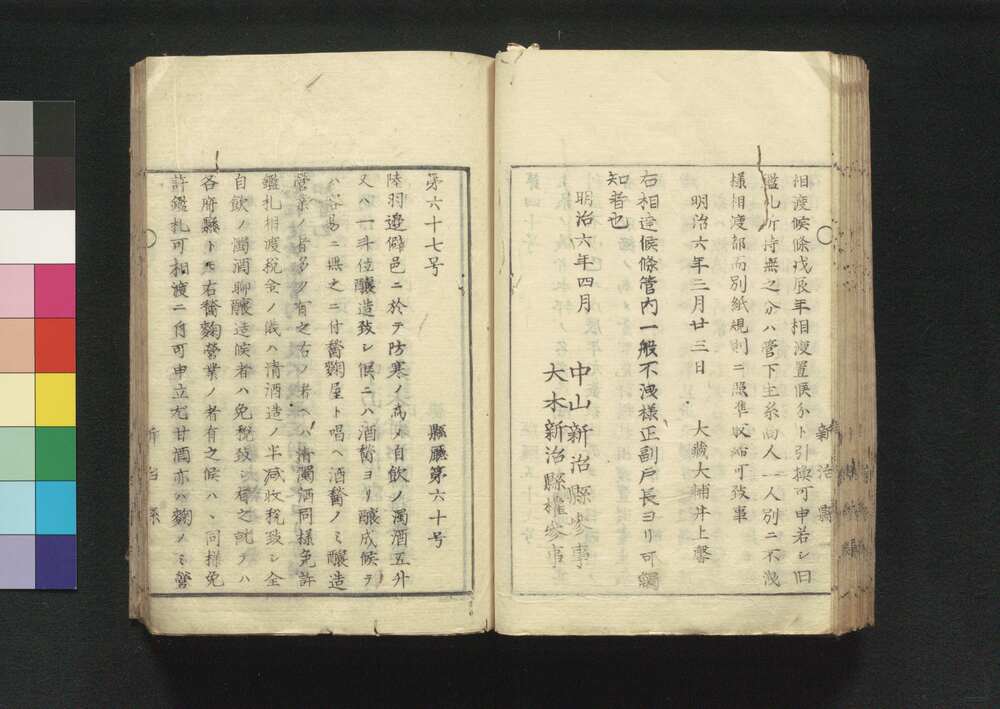 相渡候條戊辰年相渡置候分ト引換可申若シ旧
鑑札所持無之分ハ管下生糸商人一人別ニ不洩
様相渡都而別紙規則ニ照準収締可致事
明治六年三月廿三日 大藏大輔井上馨
右相達候條管内一般不洩様正副戸長ヨリ可觸
知者也
明治六年四月 中山新治縣參事
大木新治縣權參事
新治縣
第六十七号
縣廳第六十号
陸羽邉僻邑ニ於テ防寒ノ為メ自飲ノ濁酒五升
又ハ一斗位釀造致シ候ニハ酒醤ヨリ釀成候テ
ハ容易ニ無之ニ付醤麹屋ト唱ヘ酒醤ノミ釀造
營業ノ者多ク有之右ノ者ヘハ清濁酒同様免許
鑑札相渡税金ノ儀ハ清酒造ノ半減收税致シ全
自飲ノ濁酒聊釀造候者ハ免税致シ有之就テハ
各府縣トモ右醤麹營業ノ者有之候ハヽ同様免
許鑑札可相渡ニ付可申立尤甘酒亦ハ麹ノミ營
新治縣